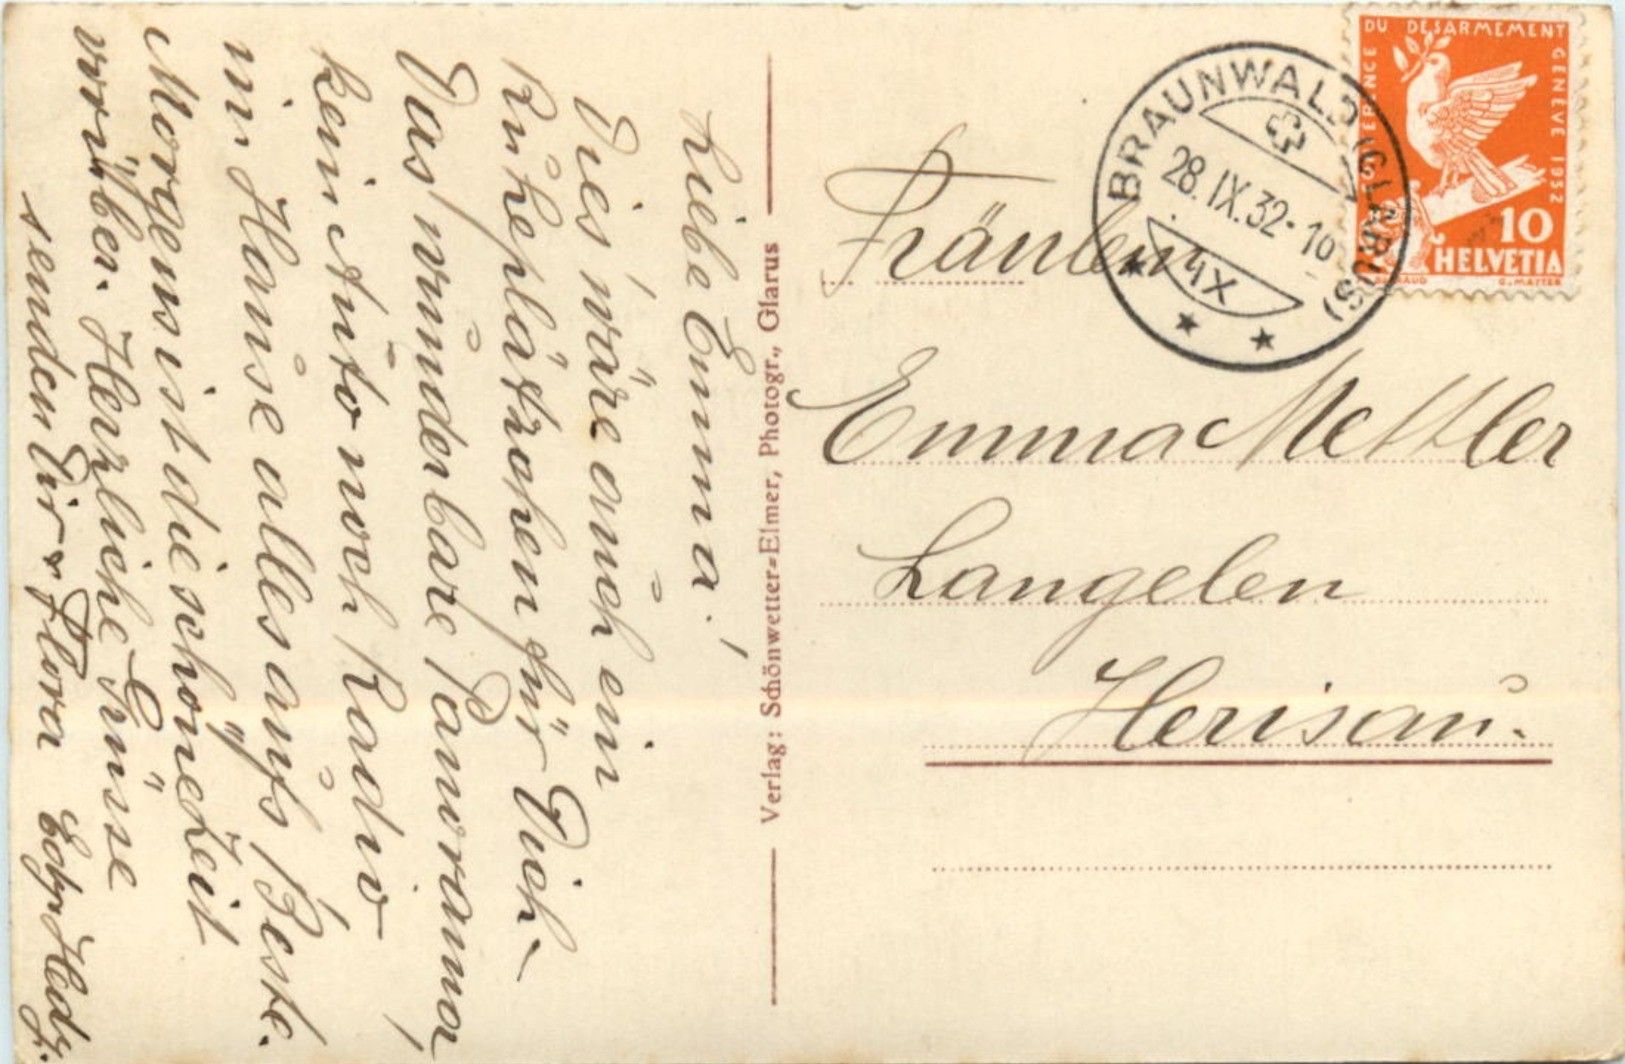 Liebe Emma!
Dies wäre auch ein
Ruheplätzchen für Dich –
Das wunderbare Panorama,
kein Auto noch Radio
im Hause alles aufs Beste.
Morgens ist die schöne Zeit
vorüber. Herzliche Grüsse
senden Dir Flora Hedy.
Verlag: Schönwetter=Elmer, Photogr., Glarus
BRAUNWALD (GLARUS)
28.IX.32-10
DU DESARMEMENT
GENEVE 1932
10
HELVETIA
Fräulein
Emma Mettler
Langelen
Herisau.